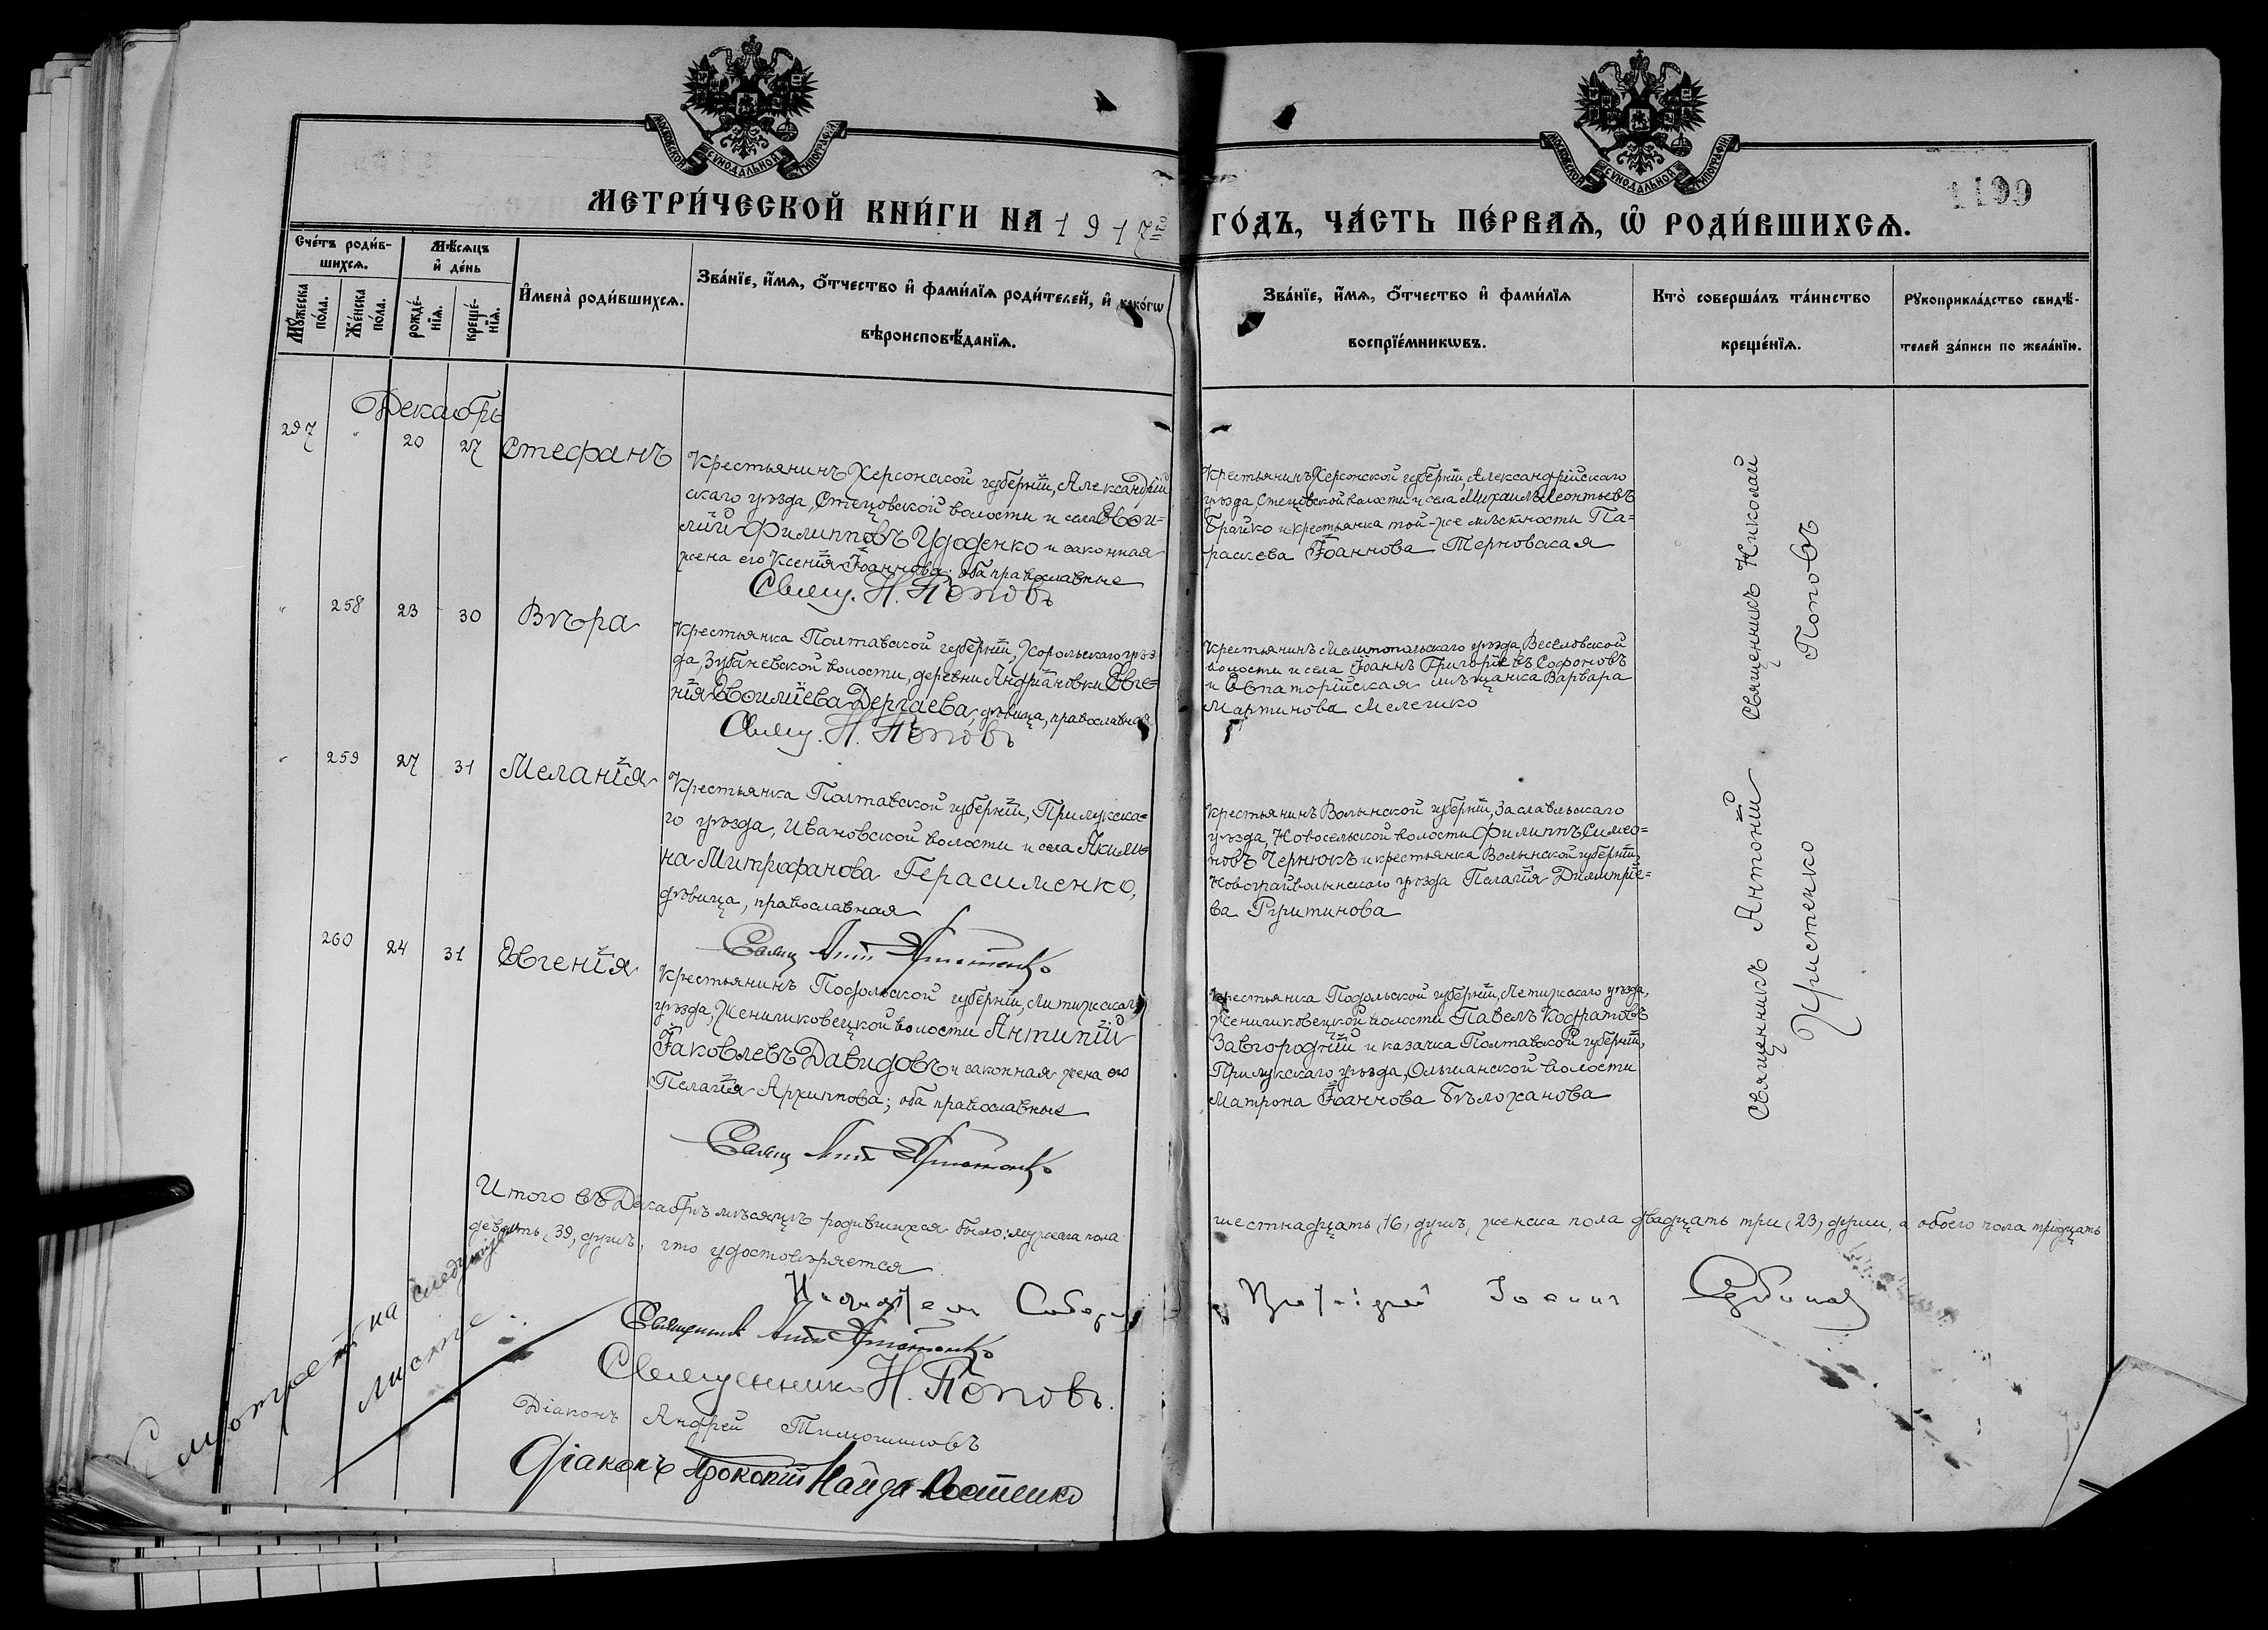 МОСКОВСКОЙ СѴНОДАЛЬНОЙ ТИПОГРАФІИ
МОСКОВСКОЙ СѴНОДАЛЬНОЙ ТИПОГРАФІИ
1199
МЕТРИ́ЧЕСКОЙ КНИ́ГИ НА 1917й ГО́ДЪ, ЧА́СТЬ ПЕ́РВАѦ, Ѡ҆ РОДИ́ВШИХСѦ.
Сче́тъ роди́в-
шихсѧ.
Мѣ́сѧцъ
и҆ де́нь
Мꙋ́жеска
по́ла.
Же́нска
по́ла.
рожде́-
нїѧ.
креще́-
нїѧ.
И҆мена̀ роди́вшихсѧ.
Зва́нїе, и҆́мѧ, ѻ҆́тчество и҆ фами́лїѧ роди́телей, и҆ како́гѡ
вѣроисповѣ́данїѧ.
Зва́нїе, и҆́мѧ, ѻ҆́тчество и҆ фами́лїѧ
воспрїе́мникѡвъ.
Кто̀ соверша́лъ та́инство
креще́нїѧ.
Рꙋкоприкла́дство свидѣ́-
телей за́писи по жела́нїю.
Декабрь
297 " 20 27 Стефанъ
Крестьянинъ Херсонской губерніи, Александрій
скаго уѣзда, Стецовской волости и села Евѳи-
мій Филипповъ Удоденко и законная
жена его Ксенія Іоаннова; оба православные
Свящ. Н. Поповъ
Крестьянинъ Херсонской губерніи, Александрійскаго
уѣзда, Стецовской волости и села Михаилъ Леонтьевъ
Брайко и крестьянка той-же мѣстности Па-
раскева Іоаннова Терновская
" 258 23 30 Вѣра
Крестьянка Полтавской губерніи, Хорольскаго уѣз-
да, Зубаневской волости, деревни Андріановки Евге-
нія Евѳиміева Дергаева, дѣвица, православная
Свящ. Н. Поповъ
Крестьянинъ Мелитопольскаго уѣзда, Веселовской
волости и села Іоаннъ Григорьевъ Софоновъ
и Евпаторійская мѣщанка Варвара
Мартинова Мелешко
" 259 27 31 Меланія
Крестьянка Полтавской губерніи, Прилукска-
го уѣзда, Ивановской волости и села Акили-
на Митрофанова Герасименко,
дѣвица, православная
Свящ Ант Христенко
Крестьянинъ Волынской губерніи, Заславльскаго
уѣзда, Новосельской волости Филиппъ Симео-
новъ Чернюкъ и крестьянка Волынской губерніи,
Новоградволынскаго уѣзда Пелагія Димитріе-
ва
260 24 31 Евгенія
Крестьянинъ Подольской губерніи, Литижскаго
уѣзда, Женишковецкой волости Антипій
Іаковлевъ Давидовъ и законная жена его
Пелагія Архиппова; оба православные
Свящ Ант Христенко
Крестьянка Подольской губерніи, Летижскаго уѣзда,
Женишковецкой волости Павелъ Кодратовъ
Завгородній и казачка Полтавской губерніи,
Прилукскаго уѣзда, Ольшанской волости
Матрона Іоаннова Бѣложанова
Священникъ Николай
Поповъ
Священникъ Антоній
Христенко
Итого въ Декабрѣ мѣсяцѣ родившихся было: мужеска пола шестнадцать (16) душъ, женска пола двадцать три (23) души, а обоего пола тридцать
девять (39) душъ, что удостовѣряется
Протоіерей Іоаннъ Сербиновъ
Священникъ Ант Христенко
Священникъ Н. Поповъ.
Діаконъ Андрей Тимошиновъ
Діаконъ Прокопій Найда
на слѣдующемъ
листѣ